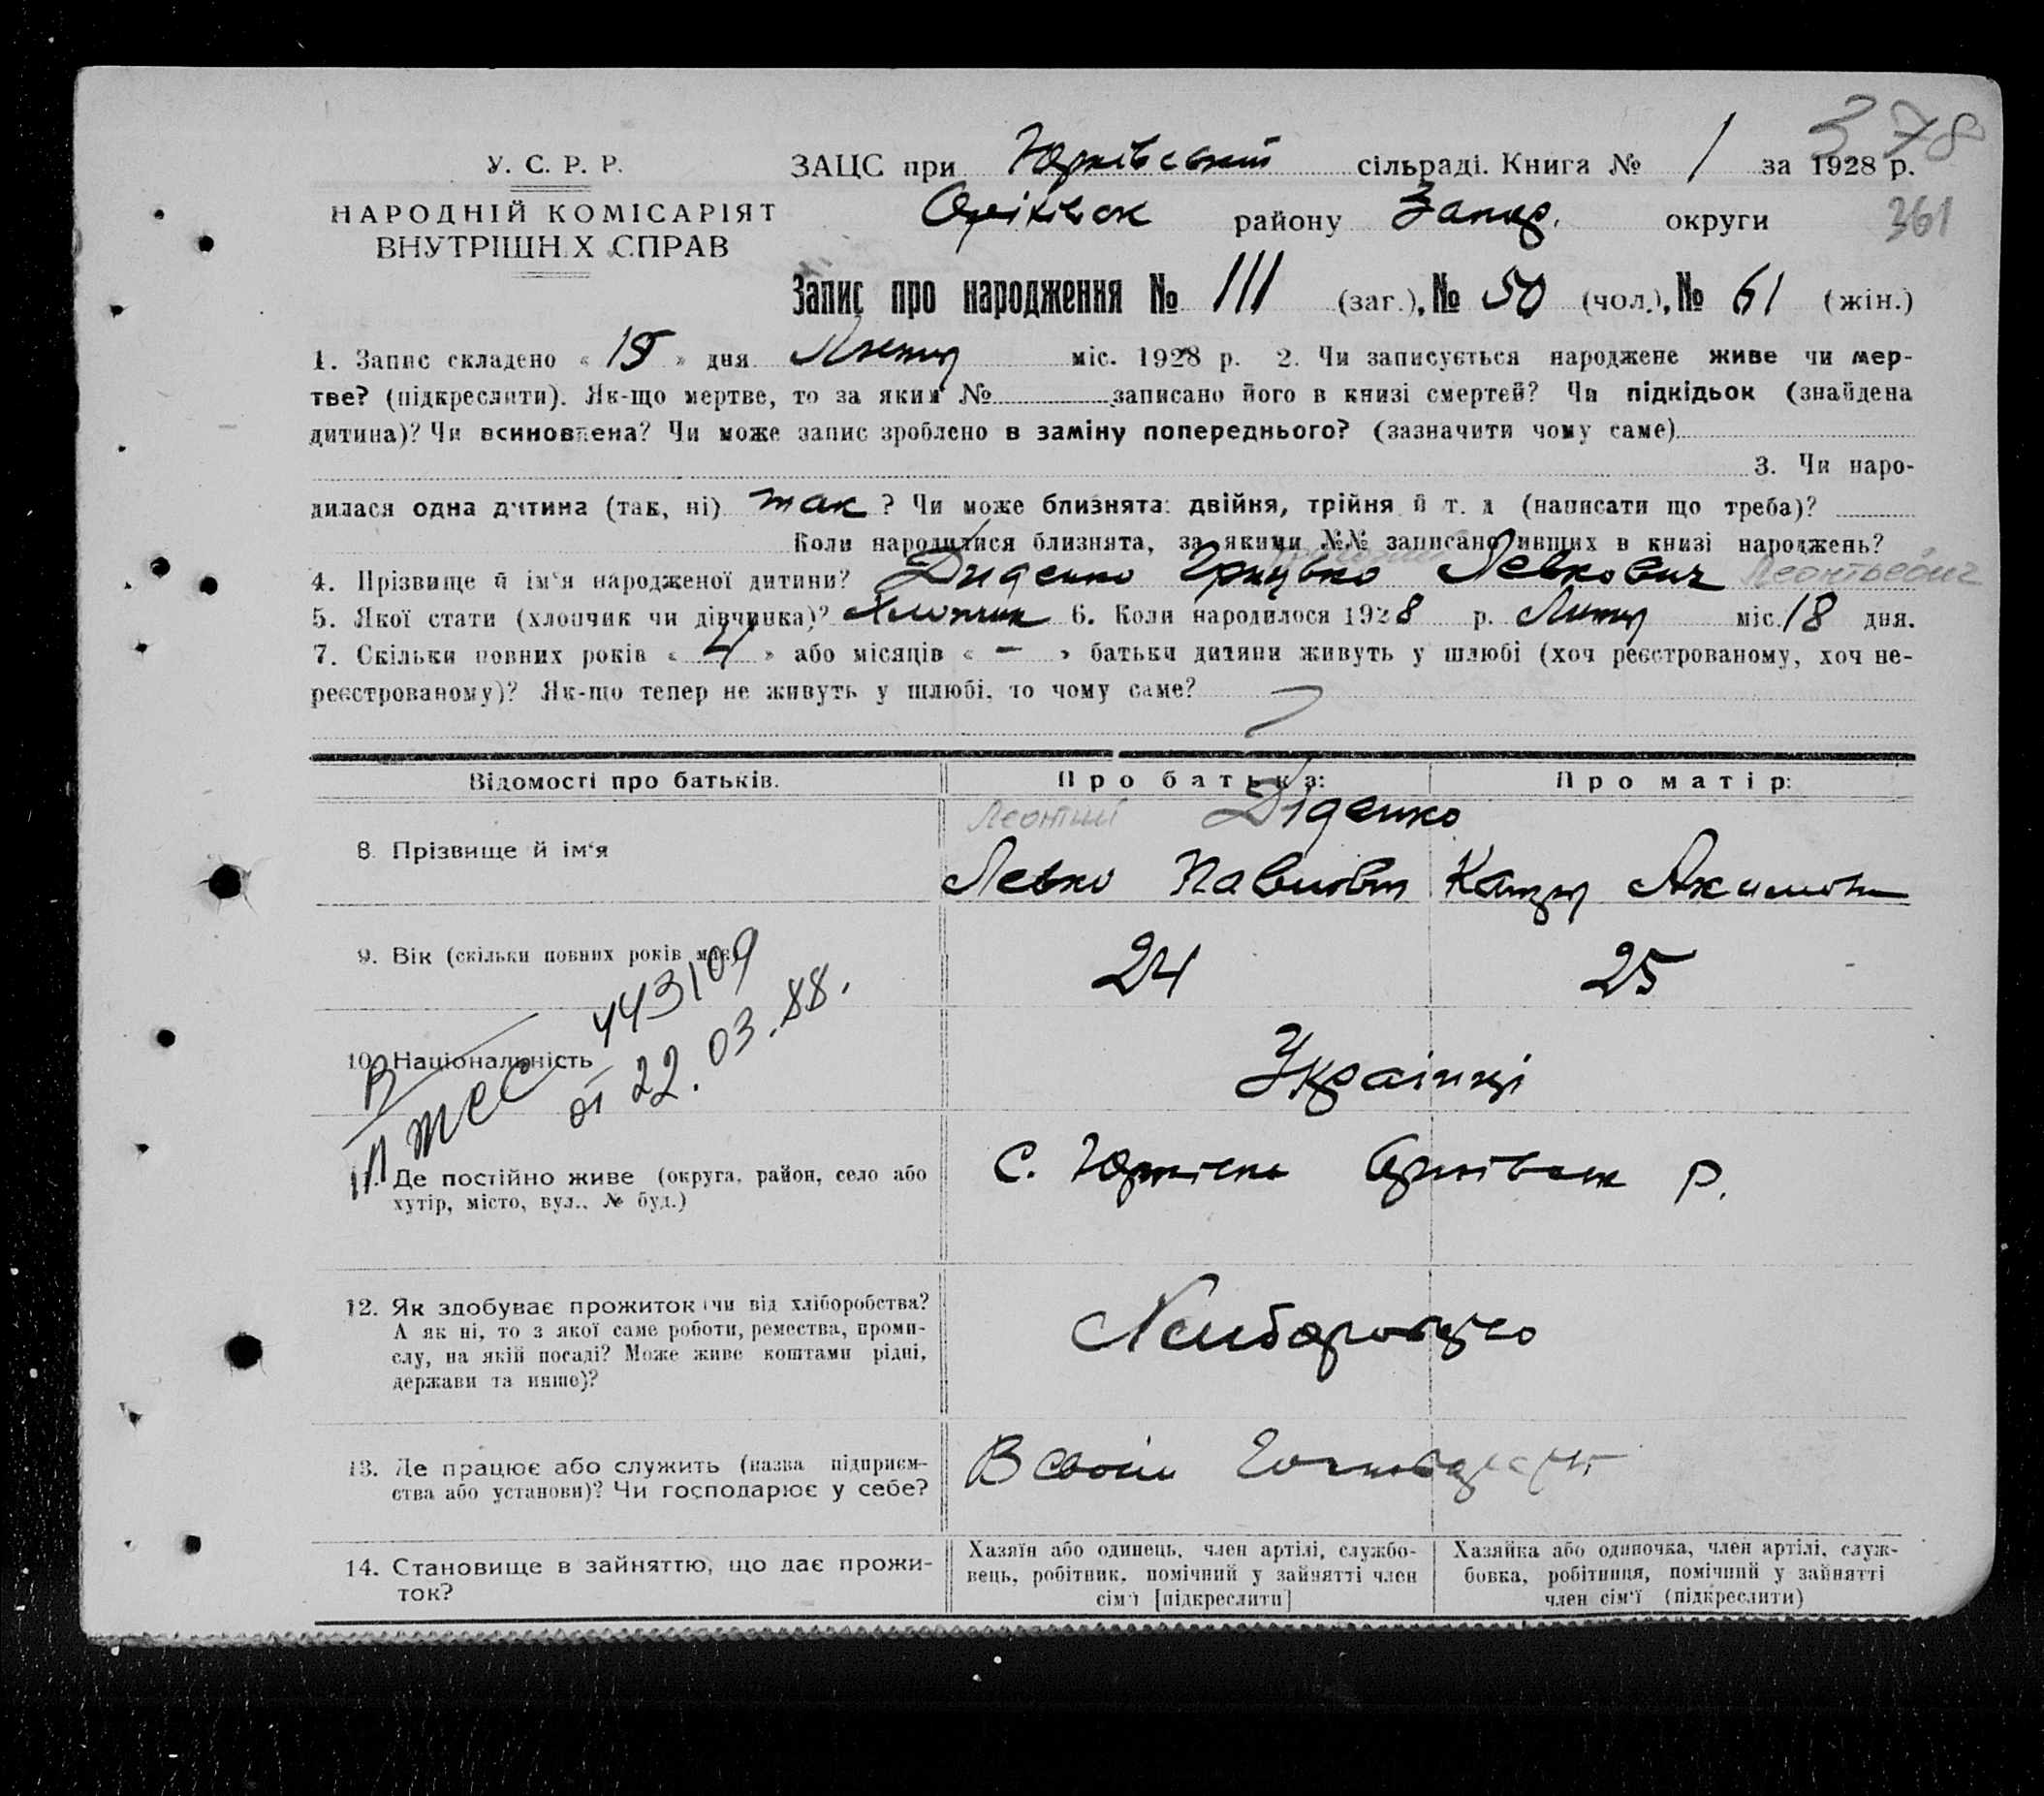 378
У. С. Р. Р.
НАРОДНІЙ КОМІСАРІЯТ
ВНУТРІШН.Х СПРАВ
ЗАЦС при Юрківській сільраді. Книга № 1 за 1928 р.
Оріхівськ району Запор. округи
361
Запис про народження № 111 (заг.), № 50 (чол.), № 61 (жін.)
1. Запис складено « 15 » дня міс. 1928 р. 2. Чи записується народжене живе чи мер-
тве? (підкреслити). Як-що мертве, то за яким № записано його в книзі смертей? Чи підкідьок (знайдена
дитина)? Чи всиновлена? Чи може запис зроблено в заміну попереднього? (зазначити чому саме)
3. Чи наро-
дилася одна дитина (так, ні) так ? Чи може близнята: двійня, трійня й т. д (написати що треба)?
Коли народилися близнята, за якими №№ записано инших в книзі народжень?
4. Прізвище й ім'я народженої дитини? Диденко Грицько Левкович Леонтьевич
5. Якої стати (хлопчик чи дівчинка)? Хлопчик 6. Коли народилося 1928 р. міс. 18 дня.
7. Скільки повних років « 4 » або місяців « — » батьки дитини живуть у шлюбі (хоч реєстрованому, хоч не-
реєстрованому)? Як-що тепер не живуть у шлюбі, то чому саме?
Відомості про батьків. Про батька: Про матір:
Леонтий Діденко
8. Прізвище й ім'я Левко Павлович
9. Вік (скільки повних років має) 24 25
443109
от 22.03.88.
10. Національність Українці
11. Де постійно живе (округа, район, село або
хутір, місто, вул., № буд.)
С. Юрківка Оріхівськ р.
12. Як здобуває прожиток (чи від хліборобства?
А як ні, то з якої саме роботи, ремества, проми-
слу, на якій посаді? Може живе коштами рідні,
держави та инше)?
13. Де працює або служить (назва підприєм-
ства або установи)? Чи господарює у себе?
В своїм господарстві
14. Становище в зайняттю, що дає прожи-
ток?
Хазяїн або одинець, член артілі, службо-
вець, робітник, помічний у зайнятті член
сім'ї [підкреслити]
Хазяйка або одиночка, член артілі, служ-
бовка, робітниця, помічний у зайнятті
член сім'ї (підкреслити)